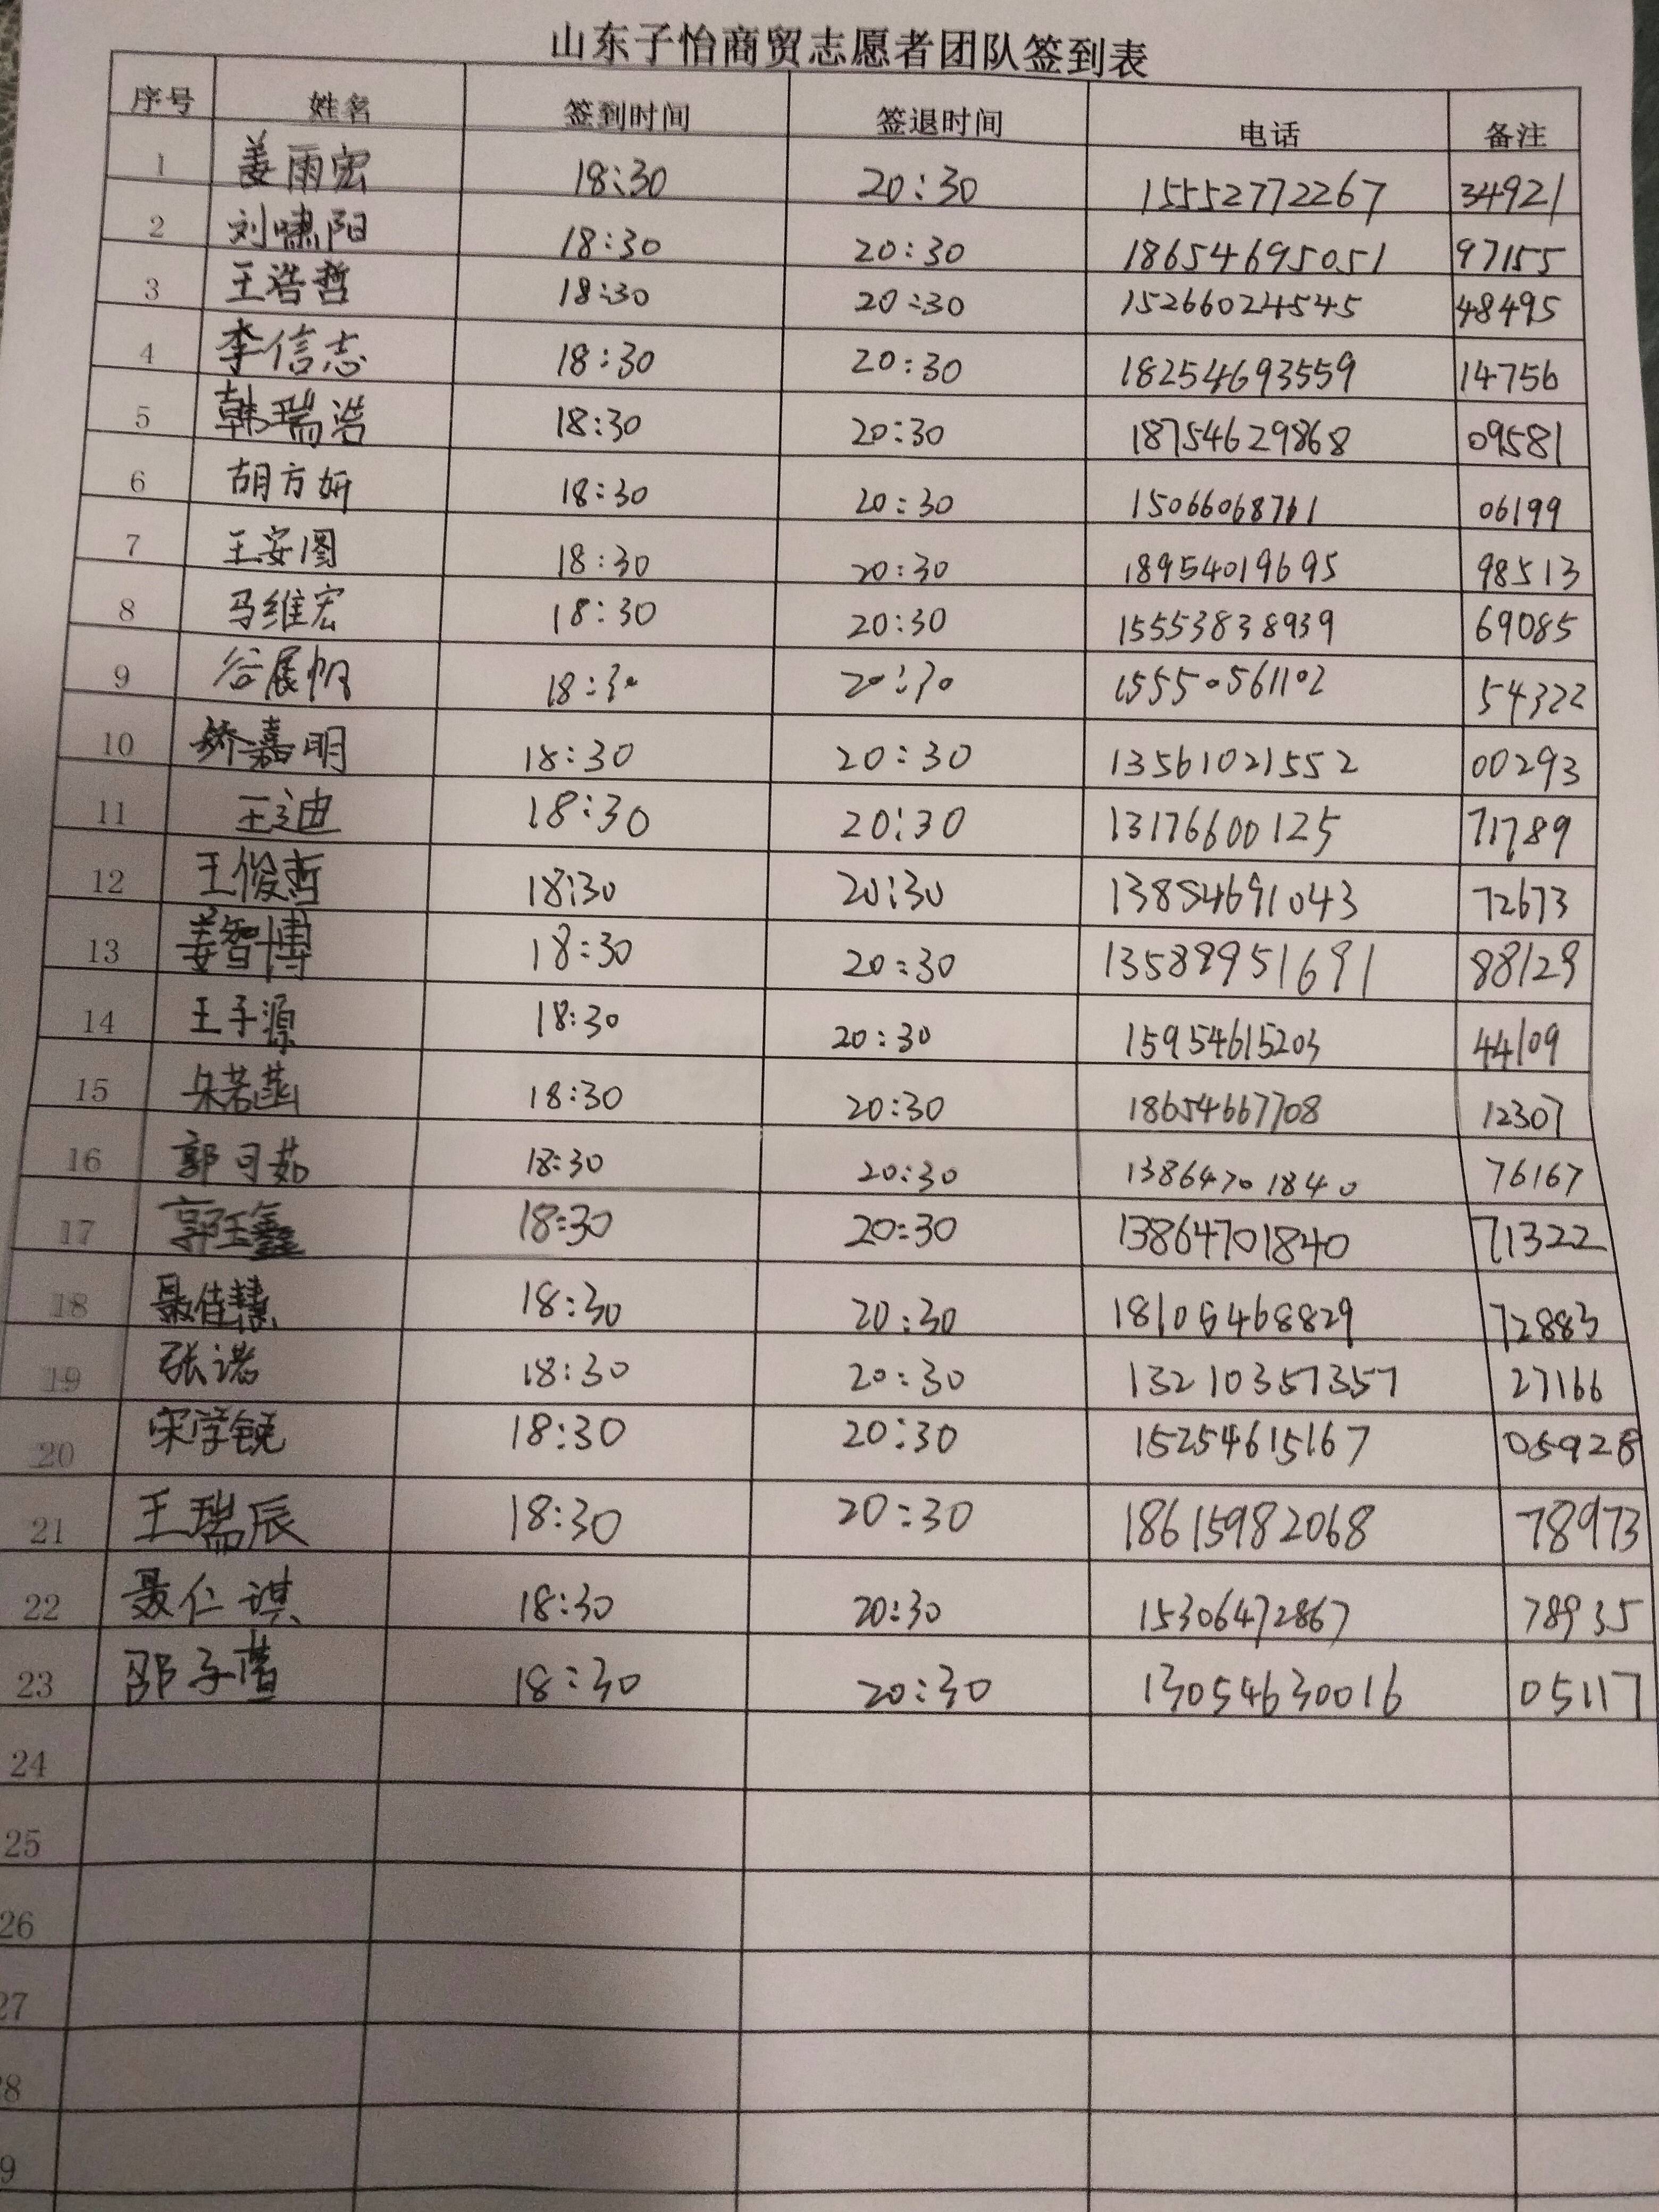 山东子怡商贸志愿者团队签到表
序号 姓名 签到时间 签退时间 电话 备注
1 姜雨宏 18:30 20:30 15552772267 34921
2 刘啸阳 18:30 20:30 18654695051 97155
3 王浩哲 18:30 20:30 15266024545 48495
4 李信志 18:30 20:30 18254693559 14756
5 韩瑞浩 18:30 20:30 18754629868 09581
6 胡方妍 18:30 20:30 15066068761 06199
7 王安图 18:30 20:30 18954019695 98513
8 马维宏 18:30 20:30 15553838939 69085
9 谷展帆 18:30 20:30 15550561102 54322
10 嘉明 18:30 20:30 13561021552 00293
11 王迪 18:30 20:30 13176600125 71789
12 王俊哲 18:30 20:30 13854691043 72673
13 姜智博 18:30 20:30 13589951691 88129
14 王子源 18:30 20:30 15954615203 44109
15 朱若菡 18:30 20:30 18654667708 12307
16 郭可茹 18:30 20:30 13864701840 76167
17 郭玉鑫 18:30 20:30 13864701840 71322
18 聂佳慧 18:30 20:30 18105468829 72883
19 张诺 18:30 20:30 13210357357 27166
20 宋学锐 18:30 20:30 15254615167 05928
21 王瑞辰 18:30 20:30 18615982068 78973
22 聂仁琪 18:30 20:30 15306472867 78935
23 邵子萱 18:30 20:30 13054630016 05117
24
25
26
27
28
9